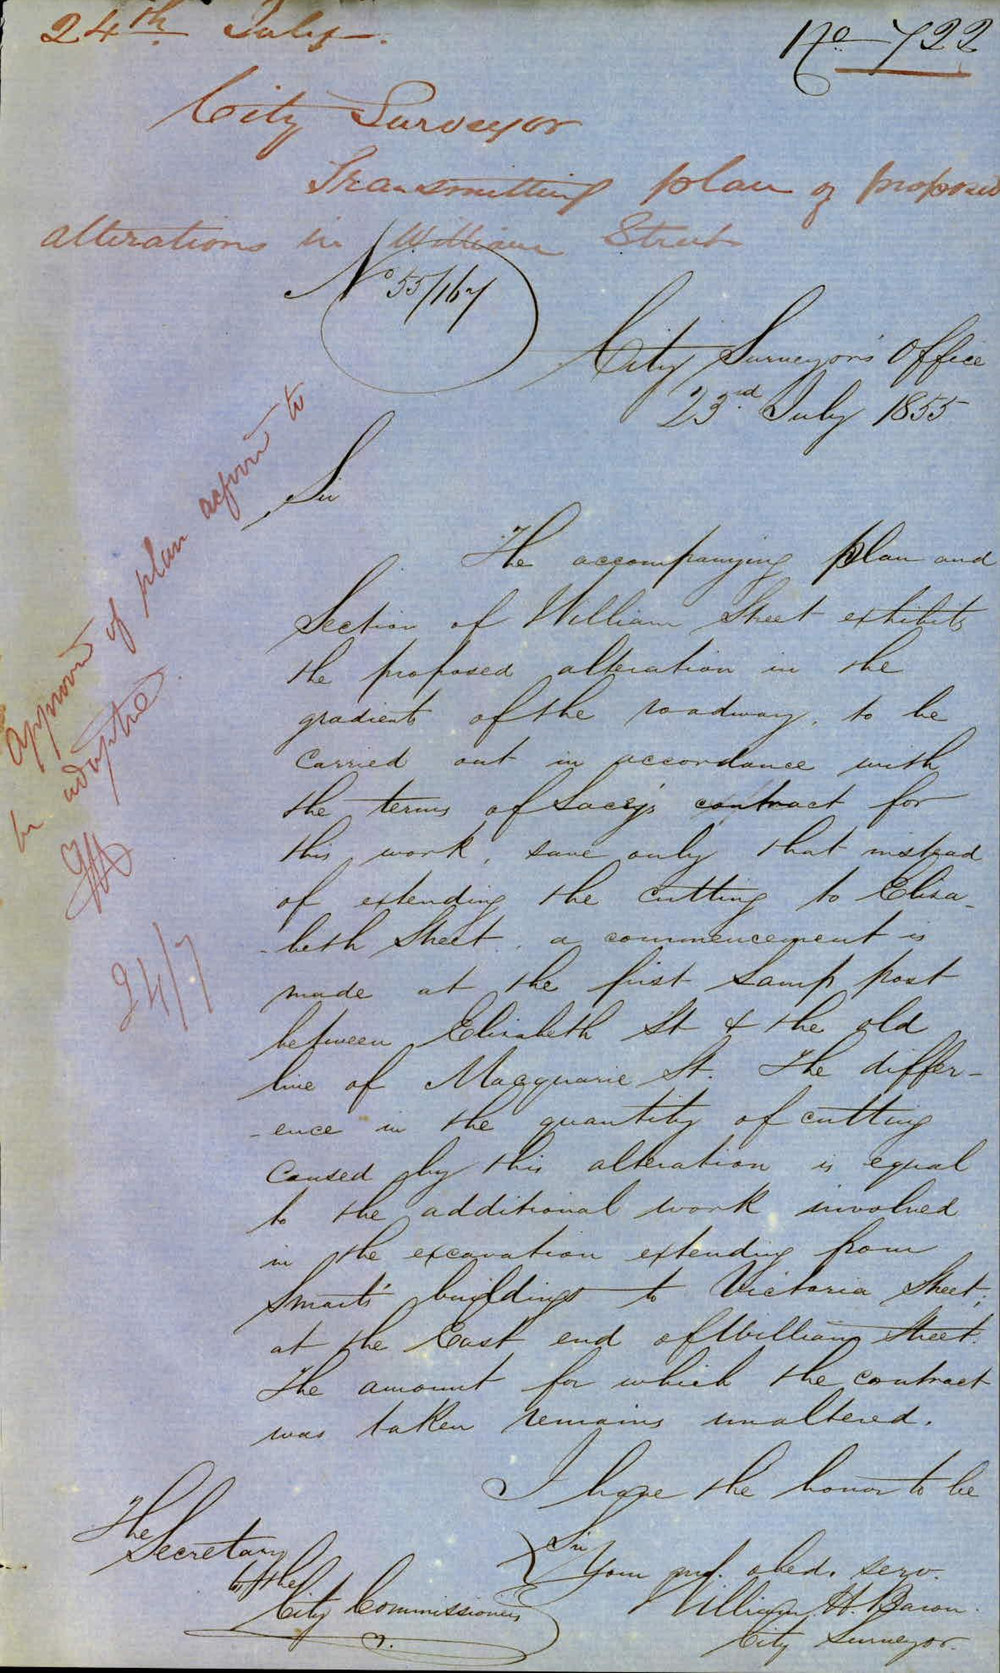 24th July
No 722
City Surveyor
Transmitting plan of proposed
alterations in William Street
No 55/167
City Surveyor's Office
23rd July 1855
Sir
The accompanying plan and
Section of William Street exhibits
the proposed alteration in the
gradients of the roadway, to be
carried out in accordance with
the terms of Lacey's contract for
this work, save only that instead
of extending the cutting to Eliza-
-beth Street, a commencement is
made at the first Lamp post
between Elizabeth St & the old
line of Macquarie St. The differ-
-ence in the quantity of cutting
caused by this alteration is equal
to the additional work involved
in the excavation extending from
Smart's buildings to Victoria Street,
at the East end of William Street.
The amount for which the contract
was taken remains unaltered.
I have the honor to be
Sir
Your obed. serv.
William H. Bacon
City Surveyor.
The Secretary
to the
City Commissioners
Approved of plan to
be adopted
24/7